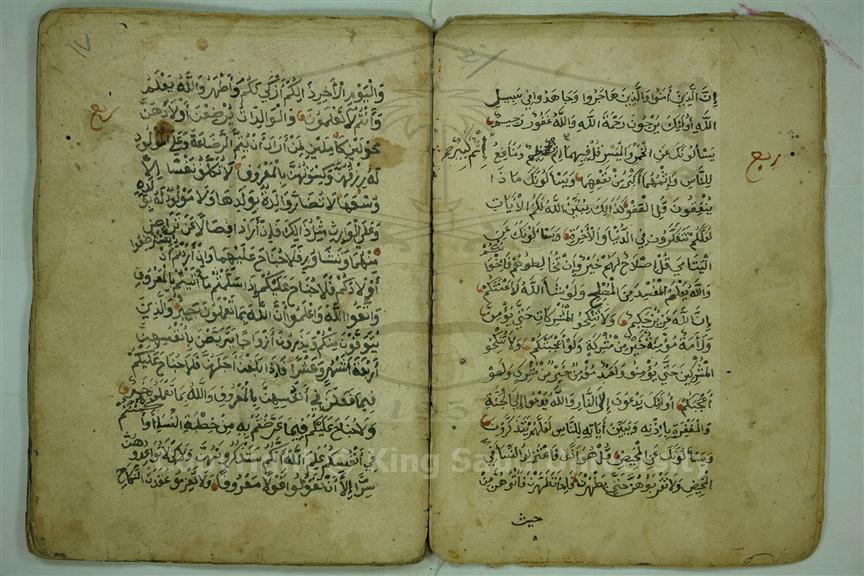 إن الذين آمنوا والذين هاجروا وجاهدوا في سبيل
الله أولئك يرجون رحمة الله والله غفور رحيم
يسألونك عن الخمر والميسر قل فيهما إثم كبير ومنافع
ربع
للناس وإثمهما أكبر من نفعهما ويسألونك ماذا
ينفقون قل العفو كذالك يبين الله لكم الآيات
لعلكم تتفكرون في الدنيا والآخرة ويسألونك عن
اليتامى قل إصلاح لهم خير وإن تخالطوهم فإخوانكم
والله يعلم المفسد من المصلح ولو شاء الله لأعنتكم
إن الله عزيز حكيم ولا تنكحوا المشركات حتى يؤمن
ولأمة مؤمنة خير من مشركة ولو أعجبتكم ولا تنكحوا
المشركين حتى يؤمنوا ولعبد مؤمن خير من مشرك ولو
أعجبكم أولئك يدعون إلى النار والله يدعوا إلى الجنة
والمغفرة بإذنه ويبين آياته للناس لعلهم يتذكرون
ويسألونك عن المحيض قل هو أذى فاعتزلوا النساء في
المحيض ولا تقربوهن حتى يطهرن فإذا تطهرن فأتوهن من
حيث
١٧
واليوم الآخر ذالكم أزكى لكم وأطهر والله يعلم
وأنتم لا تعلمون والوالدات يرضعن أولادهن
ربع
حولين كاملين لمن أراد أن يتم الرضاعة وعلى المولود
له رزقهن وكسوتهن بالمعروف لا تكلف نفس إلا
وسعها لا تضار والدة بولدها ولا مولود له بولده
وعلى الوارث مثل ذالك فإن أرادا فصالا عن تراض
منهما وتشاور فلا جناح عليهما وإن أردتم أن تسترضعوا
أولادكم فلا جناح عليكم إذا سلمتم ما آتيتم بالمعروف
واتقوا الله واعلموا أن الله بما تعملون بصير والذين
يتوفون منكم ويذرون أزواجا يتربصن بأنفسهن
أربعة أشهر وعشرا فإذا بلغن أجلهن فلا جناح عليكم
فيما فعلن في أنفسهن بالمعروف والله بما تعملون خبير
ولا جناح عليكم فيما عرضتم به من خطبة النساء أو أكننتم
في أنفسكم علم الله أنكم ستذكرونهن ولاكن لا تواعدوهن
سرا إلا أن تقولوا قولا معروفا ولا تعزموا عقدة النكاح
Copyright © King Saud University
1957